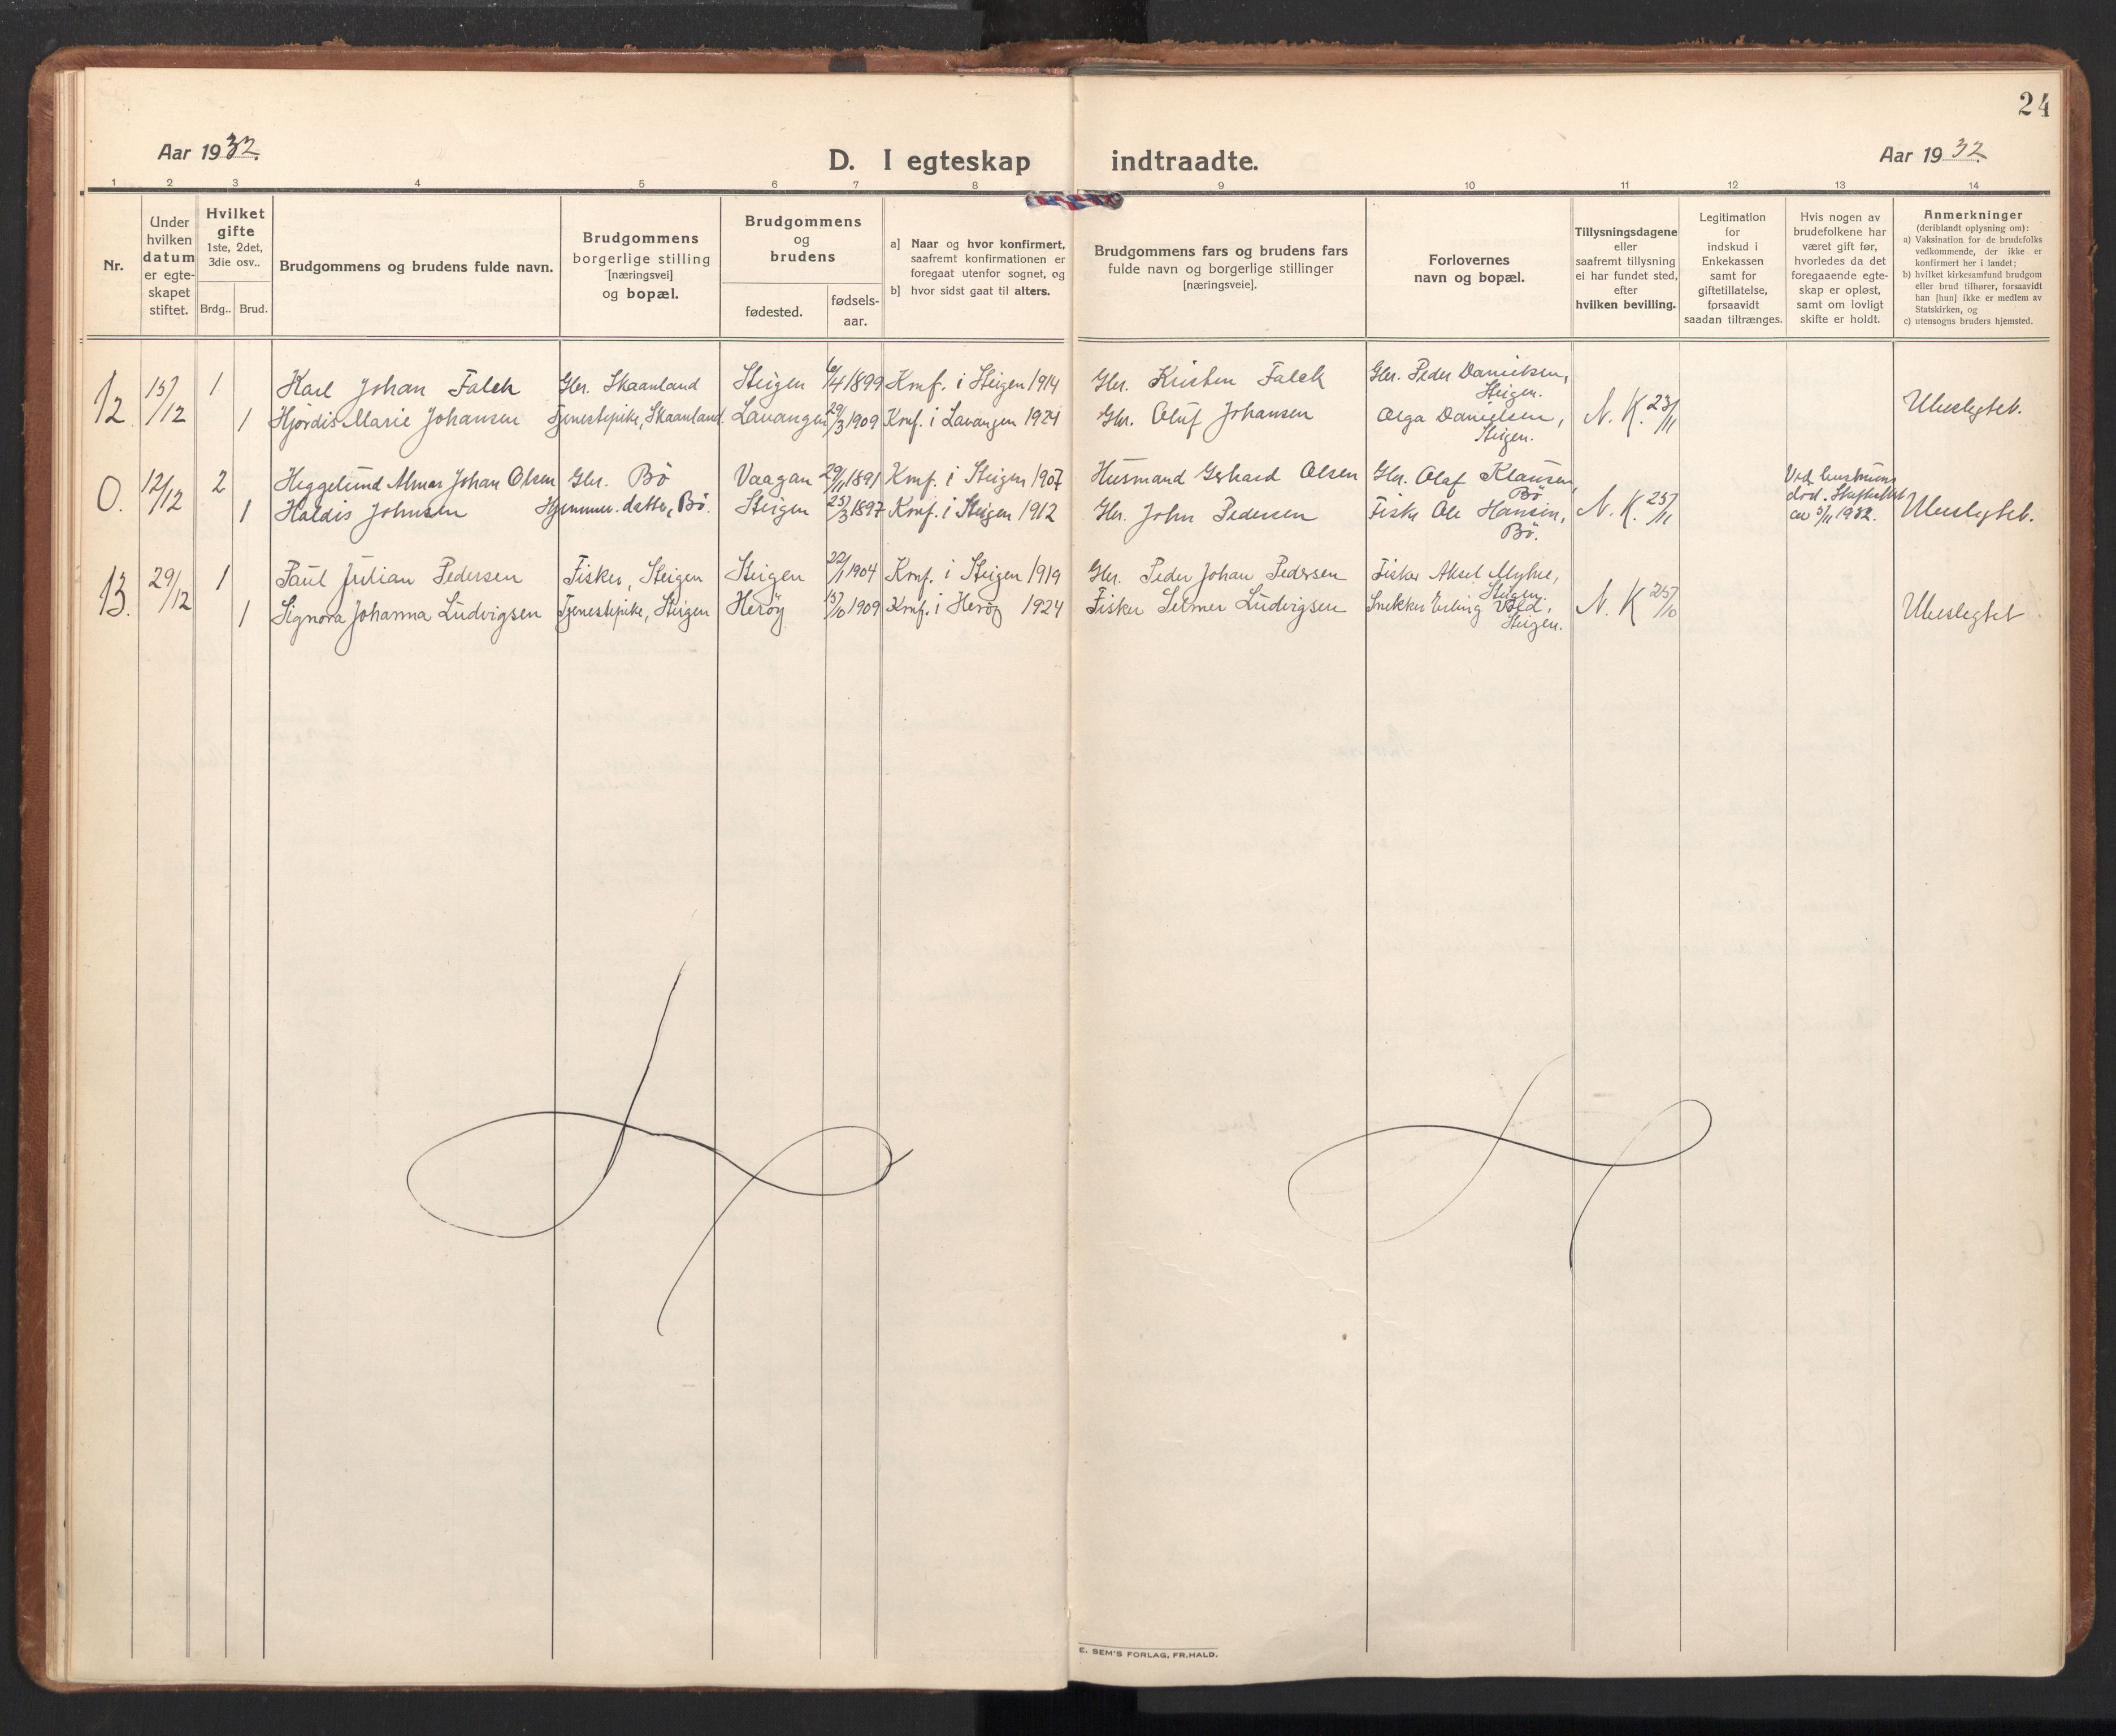 24
Aar 1932.
D. I egteskap indtraadte.
Aar 1932
1 2 3 4 5 6 7 8 9 10 11 12 13 14
Nr.
Under
hvilken
datum
er egte-
skapet
stiftet.
Hvilket
gifte
1ste, 2det,
3die osv..
Brdg.. Brud.
Brudgommens og brudens fulde navn.
Brudgommens
borgerlige stilling
[næringsvei]
og bopæl.
Brudgommens
og
brudens
fødested.
fødsels-
aar.
a] Naar og hvor konfirmert,
saafremt konfirmationen er
foregaat utenfor sognet, og
b] hvor sidst gaat til alters.
Brudgommens fars og brudens fars
fulde navn og borgerlige stillinger
[næringsveie].
Forlovernes
navn og bopæl.
Tillysningsdagene
eller
saafremt tillysning
ei har fundet sted,
efter
hvilken bevilling.
Legitimation
for
indskud i
Enkekassen
samt for
giftetillatelse,
forsaavidt
saadan tiltrænges.
Hvis nogen av
brudefolkene har
været gift før,
hvorledes da det
foregaaende egte-
skap er opløst,
samt om lovligt
skifte er holdt.
Anmerkninger
(deriblandt oplysning om):
a) Vaksination for de brudefolks
vedkommende, der ikke er
konfirmert her i landet;
b) hvilket kirkesamfund brudgom
eller brud tilhører, forsaavidt
han [hun] ikke er medlem av
Statskirken, og
c) utensogns bruders hjemsted.
12 15/12 1 Karl Johan Falch Gbr. Skaanland Steigen 6/4 1899 Konf. i Steigen 1914 Gbr. Kristen Falck Gbr. Peder Danielsen, Steigen.
1 Hjørdis Marie Johansen Tjenestepike, Skaanland. Lavangen 29/3 1909 Konf. i Lavangen 1924 Gbr. Oluf Johansen Olga Danielsen, Steigen. N. K. 23/11 Ubeslegtet.
0. 12/12 2 Heggelund Almar Johan Olsen Gbr. Bö Vaagan 29/11 1891 Konf. i Steigen 1907 Husmand Gerhard Olsen Gbr. Olaf Klausen, Bö
1 Haldis Johnsen Hjemmev. datter, Bö. Steigen 25/3 1897 Konf. i Steigen 1912 Gbr. John Pedersen Fisker Ole Hansen, Bö. N. K. 25/11 Ved hustruens død. Skifteattest av 5/11 1932. Ubeslegtet.
13. 29/12 1 Paul Julian Pedersen Fisker, Steigen Steigen 22/1 1904 Konf. i Steigen 1919 Gbr. Peder Johan Pedersen Fisker Aksel Myhre, Steigen.
1 Signora Johanna Ludvigsen Tjenestepike, Steigen Herøy 15/10 1909 Konf. i Herøy 1924 Fisker Selmer Ludvigsen Snekker Erling Vold, Steigen. N. K 25/10 Ubeslegtet
E. SEM'S FORLAG, FR.HALD.